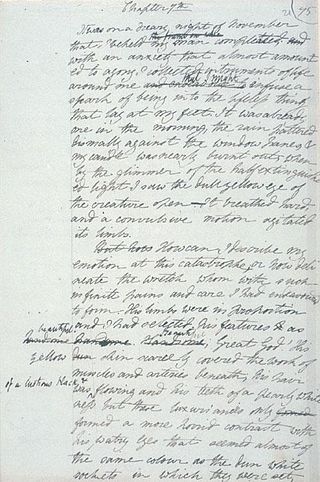 Chapter 7th
It was on a dreary night of November
that I beheld my man completed and
with an anxiety that almost amount
ed to agony, I collected instruments of life
around me and endeavoured to that I might infuse a
spark of being into the lifeless thing
that lay at my feet. It was already
one in the morning, the rain pattered
dismally against the window panes, &
my candle was nearly burnt out, when
by the glimmer of the half extinguish
ed light I saw the dull yellow eye of
the creature open — It breathed hard
and a convulsive motion agitated
its limbs.
But how How can I describe my
emotion at this catastrophe, or how deli
neate the wretch whom with such
infinite pains and care I had endeavoured
to form. His limbs were in proportion
and I had selected his features as
beautiful
handsome handsome. Handsome; Great God! His
yellow dun skin scarcely covered the work of
muscles and arteries beneath; his hair
of a lustrous black &
was flowing and his teeth of a pearly white
ness but these luxuriancies only
formed a more horrid contrast with
his watry eyes that seemed almost of
the same colour as the dun white
sockets in which they were set,
75